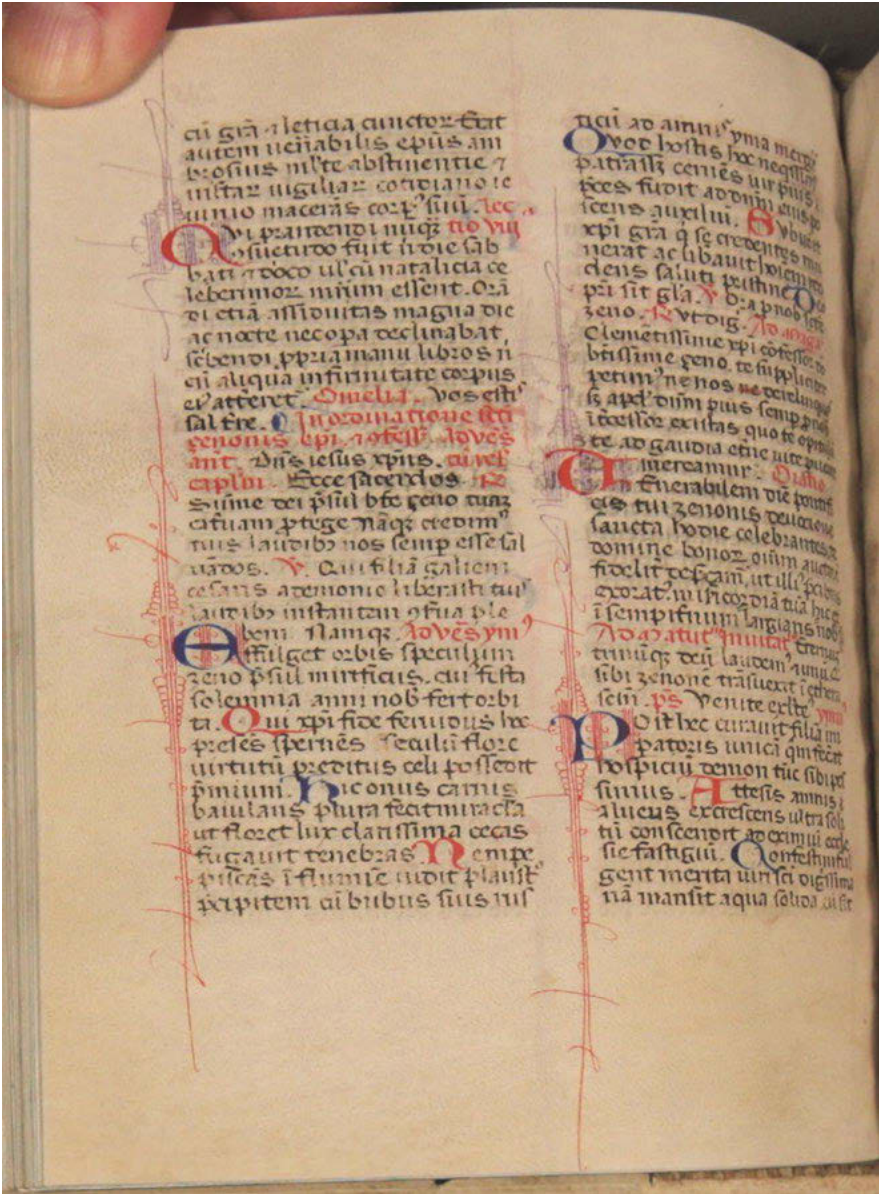 cū grā ⁊ leticia cunctoꝝ. Erat
autem ueñabilis ep̄us am
brosius ml̄te abstinentie ⁊
uigiliaꝝ cotidiano ie
iunio macerās corp' suū. lec
Qvi prandendi nūq̄ tio viii
ↄsuetudo fuit n̄ die sab
bati ⁊ dōco ul' cū natalicia ce
leberrimoꝝ mr̄ium essent. Orā
di etiā assiduitas magna die
ac nocte nec opa declinabat
sc̄bendi ꝓpria manu libros n̄
cū aliqua infirmitate corpus
ei' atteret'. Omelia. Vos estis
sal t̄re. In ordinatione sc̄i
çenonis ep̄i ⁊ ↄfess. ad ves
ant. Dn̄s iesus xp̄us. cū rel'
capl'm. Ecce sacerdos. R
Summe dei p̄sul bt̄e çeno tuaꝫ
ꝓtege nāqꝫ credim'
tuis laudibꝫ nos semp esse sal
uādos. V. Qui filiā galieni
cesaris a demonio liberasti tuis
laudibꝫ instantem ↄfua ple
bem. Namqꝫ. Ad ves. ym'
Effulget orbis speculum
zeno p̄sul mirificus. cui festa
solemnia anni nob fert orbi
ta. Qui xp̄i fide feruidus hec
p̄sēs spernēs seculi flore
uirtutū preditus celi possedit
p̄mium. Hic onus carnis
baiulans plura fecit miracla
ut floret lux clarissima cecas
fugauit tenebras. Nempe
piscās ī flumīe uidit plaust
p̄cipitem cū bubus suis rus
ticū ad amnis yma mergi
Qvod hostis hoc neqissim'
patrassꝫ cernēs uir pius
p̄ces fudit ad dn̄m eius po
scens auxiliū. Subuenit
xp̄i grā q̄ se credentes
nerat ac libauit hoīem
dens saluti pristine. Deo
pr̄i sit glā. V. Ora p nob sc̄e
zeno. R. Vt dig. Ad mag.
Clementissime xp̄i ↄfessor
btīssime çeno. te suppliciter
petim' ne nos derelinquas
sꝫ apd' dn̄m pius semp p nob
ītcessor existas quo te opitulā
te ad gaudia et̄ne uite
mereamur. Oratio
Venerabilem diē pontifi
cis tui zenonis deuotione
sancta hodie celebrantes
domine bonoꝝ oīum auctor
fidelit' ut illi' p̄cibus
exorat' misicordiā tuā hic
ī sempiternum largiaris nob
Ad matut' inuitat. Eternū
trinūqꝫ deū laudem'
sibi zenonē trāsuexit ī ethera
seu. ps Venite exl'te ymn'
Post hec curauit filiā im
patoris unicā qm fecat
hospiciū demon tūc sibi
simius. Attesis amnis
alueus excrescens ultra soli
tū conscendit ad eximiū eccle
sie fastigiū. Confestim ful
gent merita uiri sc̄i digissima
nā mansit aqua solida